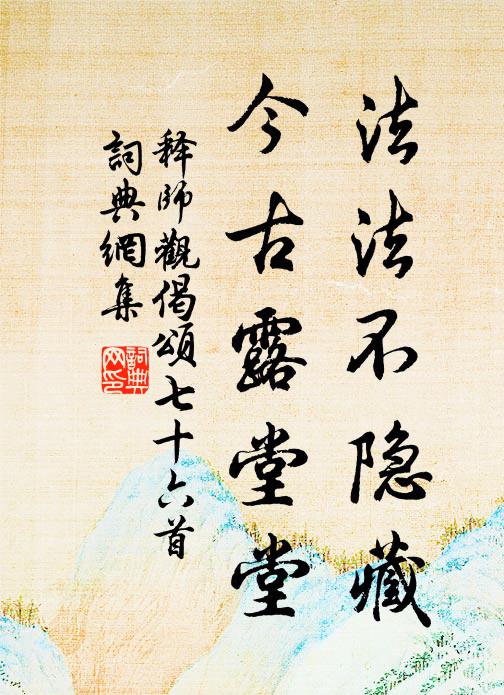 法法不隐藏
今古露堂堂
释师觀偈頌七十六首
詞典網集
詞典网印